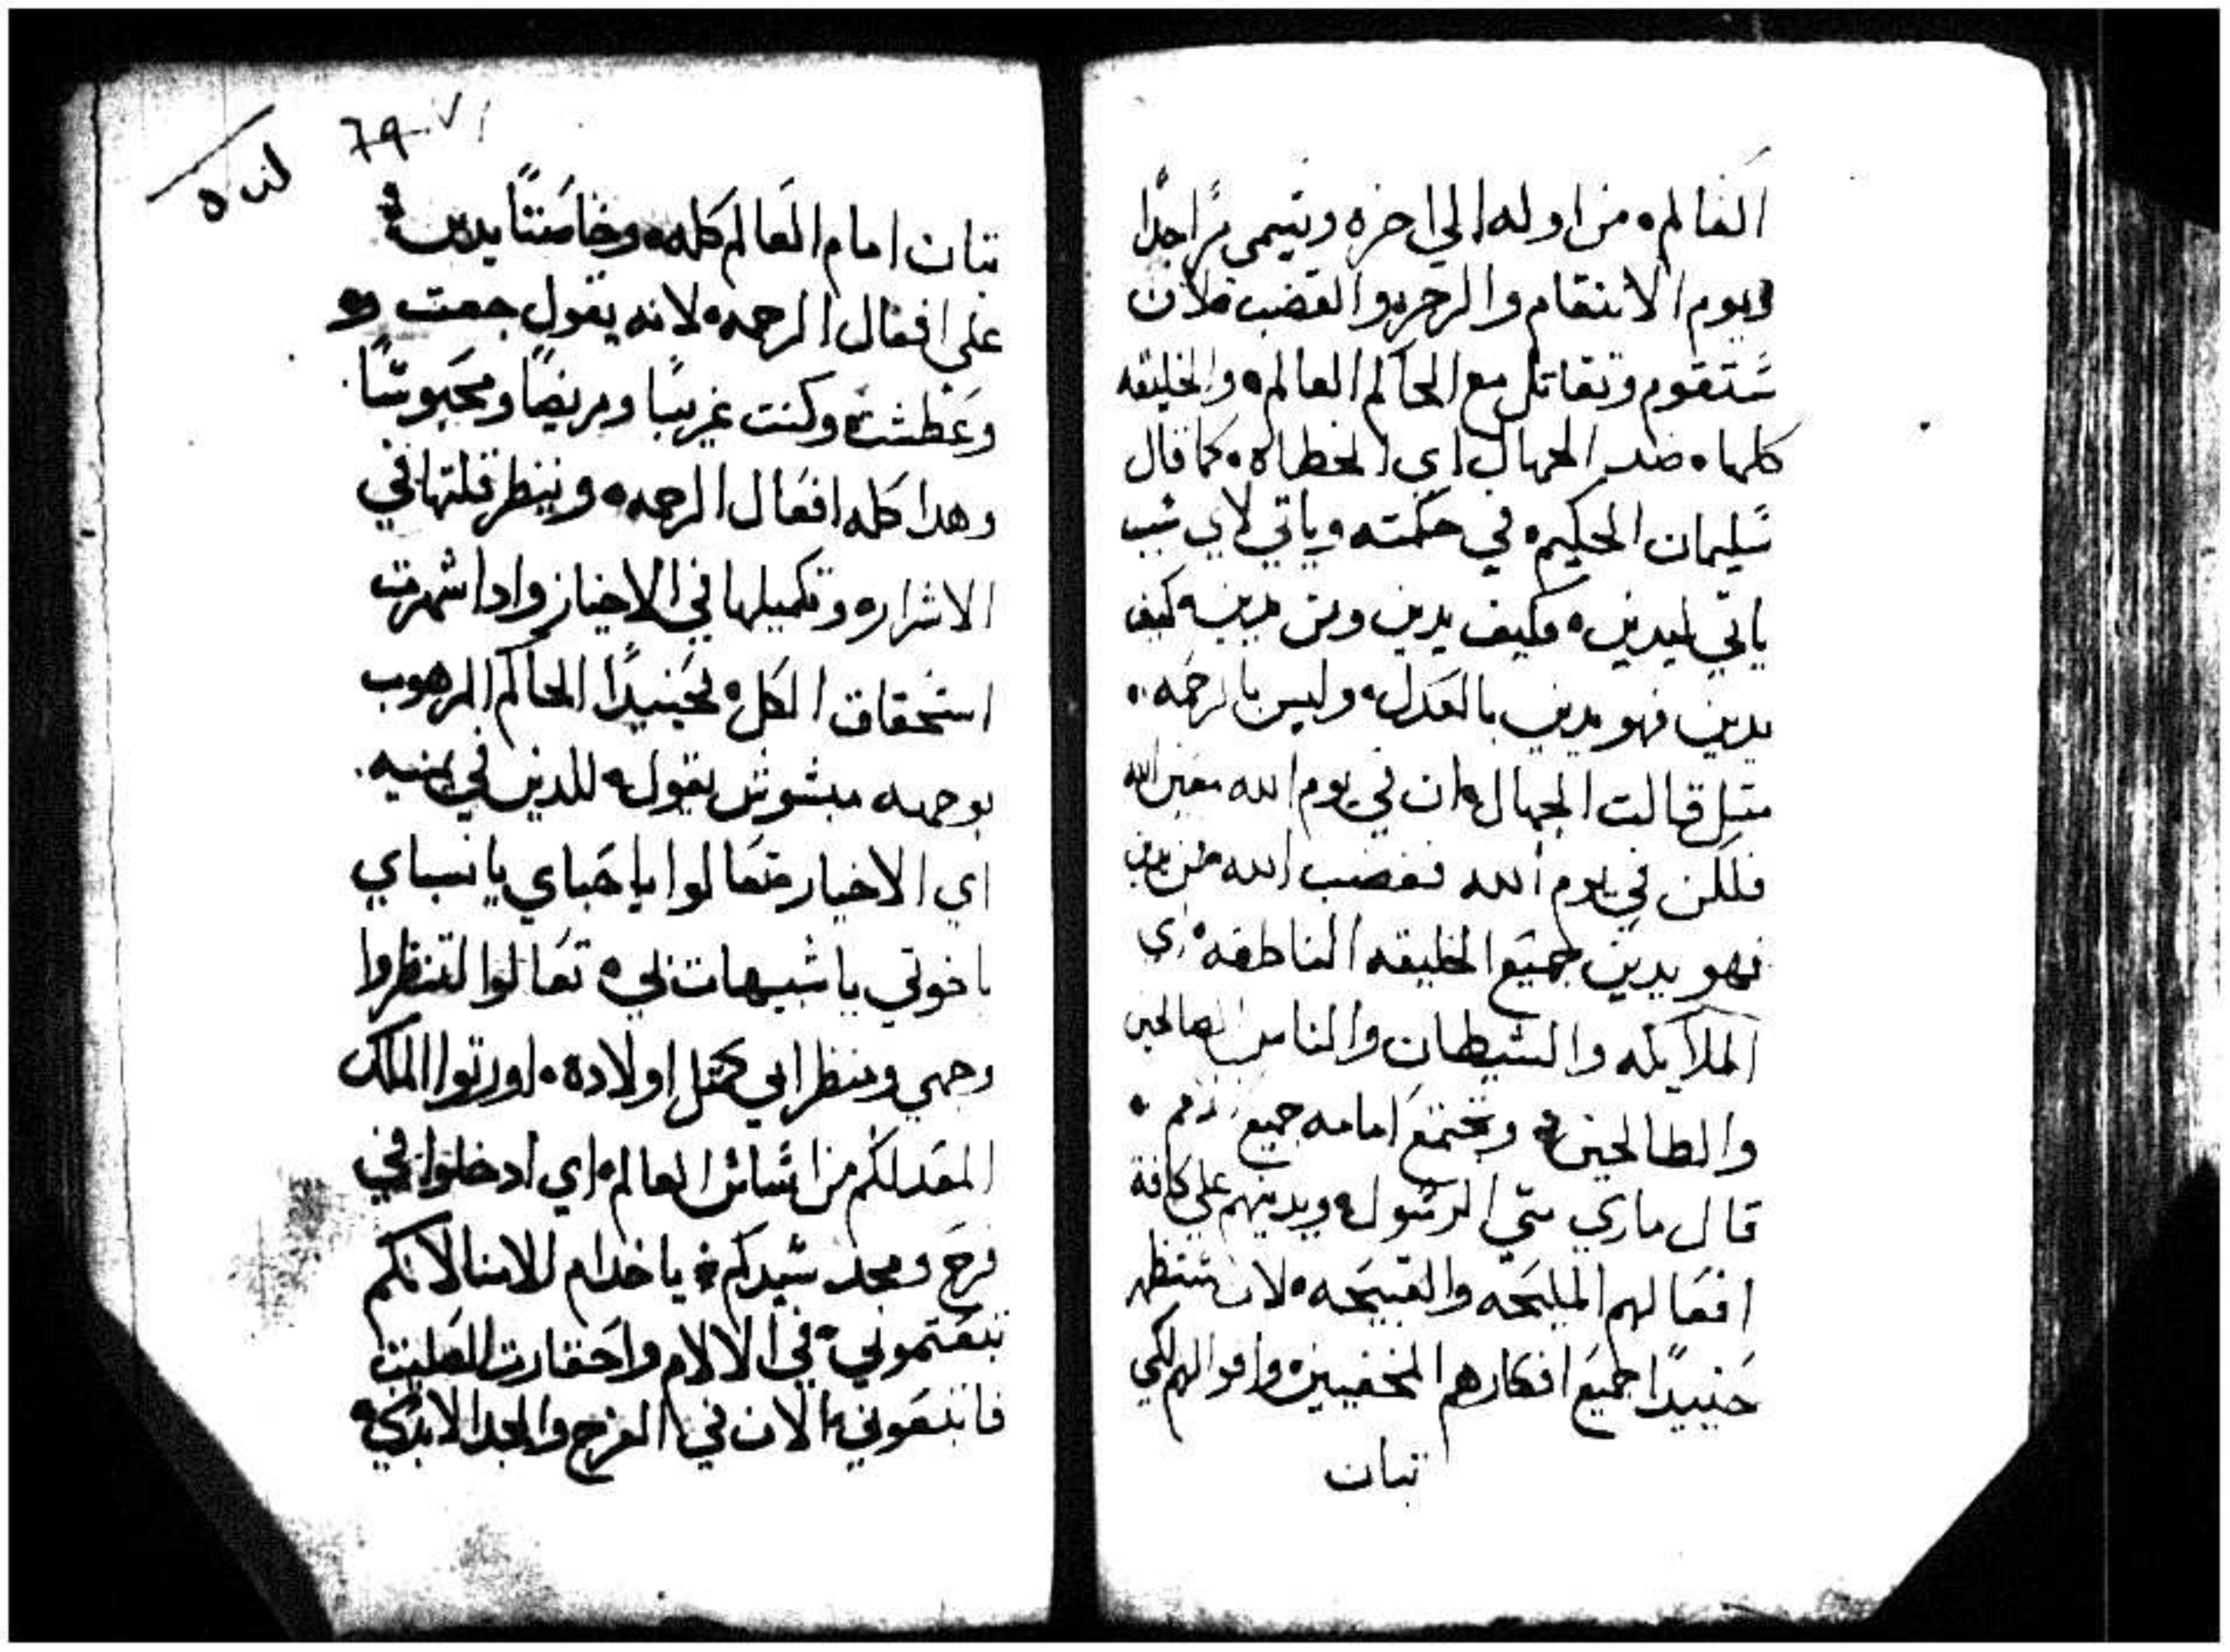 العالم من اوله الي اخره ويسمي مراجدا
ويوم الانتقام والرجز والغضب لان
ستقوم وتقاتل مع الحاكم العالم والخليقه
كلها ضد الجهال اي الخطاه كما قال
سليمان الحكيم في حكمته وياتي لاي سبب
ياتي ليدين وكيف يدين ومن يدين كيف
يدين فهو يدين بالعدل وليس بالرحمه
متل قالت الجهال ان في يوم الله
فلكن في يوم الله فغضب الله
فهو يدين جميع الخليقه الناطقه اي
الملايكه والشيطان والناس الصالحين
والطالحين وتجتمع امامه جميع
قال ماري متي الرسول ويدينهم علي كافة
افعالهم المليحه والقبيحه لان ستظهر
حنييدا جميع افكارهم المخفيين واقوالهم لكي
تبان
79
تبان امام العالم كله وخاصتا يدين
علي افعال الرحمه لانه يقول جعت
وعطشت وكنت غريبا ومريضا ومحبوسا
وهدا كله افعال الرحمه وينظر قلتها في
الاشرار وتكميلها في الاخيار وادا اشهرت
استحقاق الكل لحينيدا الحاكم المرهوب
بوجهه مبشوش يقول للدين في يمنيه
اي الاخيار تعالوا يا احباي يا نسباي
ياخوتي يا شبيهات لي تعالوا لتنظروا
وجهي وينظر ابي كمتل اولاده اورتوا الملك
المعد لكم من اساس العالم اي ادخلوا في
فرح ومجد سيدكم يا خدام الامنا لانكم
تبعتموني في الالام واحقارت الصليب
فاتبعوني الان في الفرح والمجد الابدي